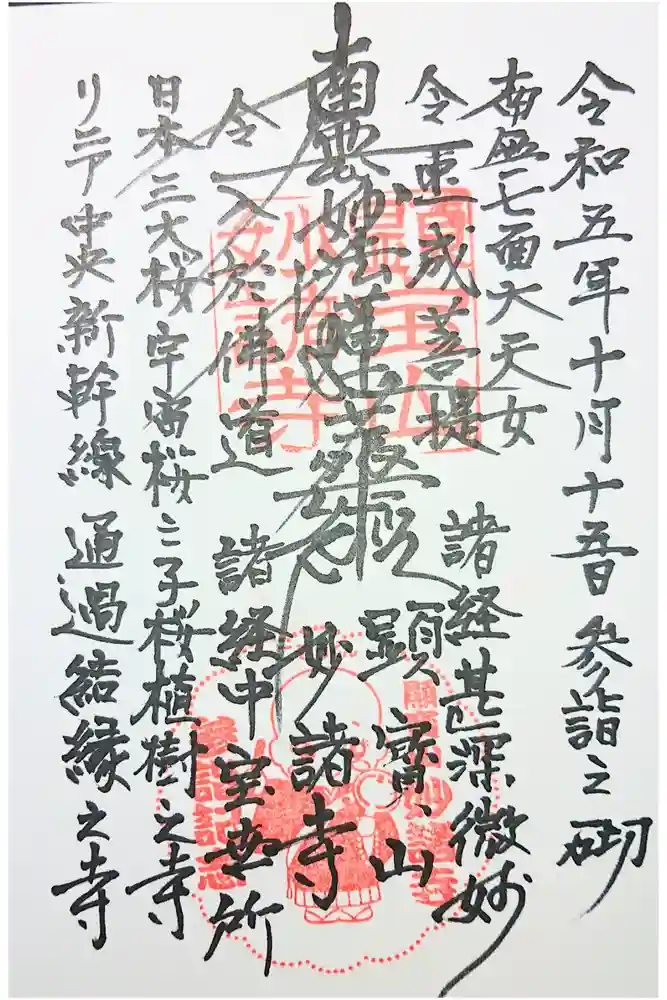 令和五年十月十五日 参詣之砌
南無七面大天女
令速成菩提 諸経甚深微妙
顕寳山
南無妙法蓮華経
妙諸寺
令入於佛道 諸経中宝世所
日本三大桜宇宙桜之子桜植樹之寺
リニア中央新幹線通過結縁之寺
妙諸寺
参詣記念